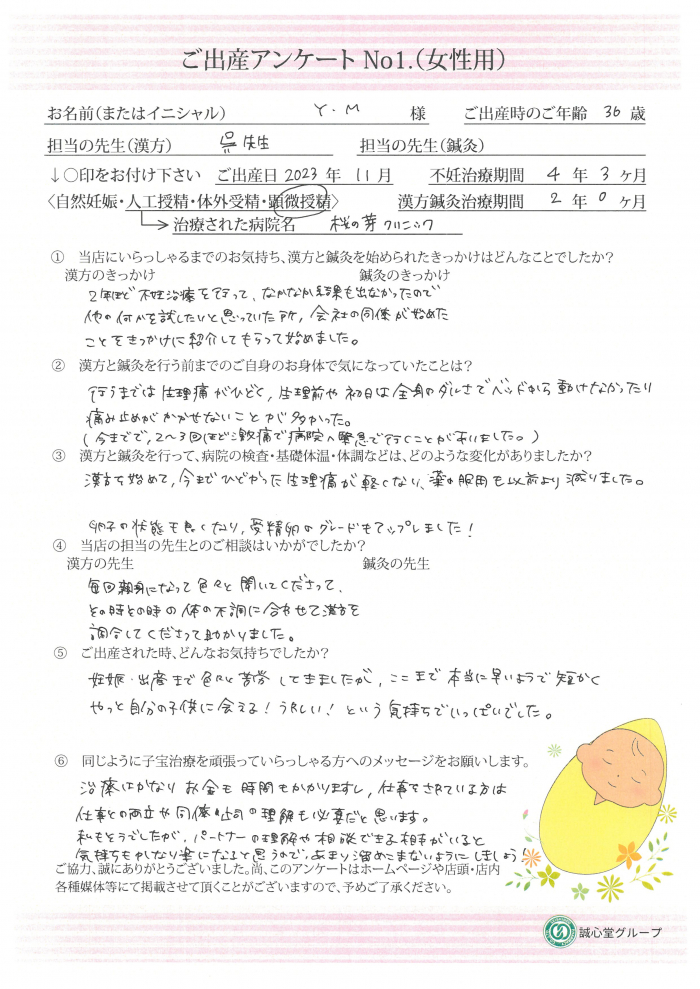 ご出産アンケート No1.（女性用）
お名前（またはイニシャル） Y・M 様 ご出産時のご年齢 36 歳
担当の先生（漢方） 呉先生 担当の先生（鍼灸）
↓〇印をお付け下さい ご出産日 2023 年 11 月 不妊治療期間 4 年 3 ヶ月
〈自然妊娠・人工授精・体外受精・顕微授精〉 漢方鍼灸治療期間 2 年 0 ヶ月
治療された病院名 桜の芽クリニック
① 当店にいらっしゃるまでのお気持ち、漢方と鍼灸を始められたきっかけはどんなことでしたか？
漢方のきっかけ 鍼灸のきっかけ
2年ほど不妊治療を行って、なかなか結果も出なかったので
他の何かを試したいと思っていた所，会社の同僚が始めた
ことをきっかけに紹介してもらって始めました。
② 漢方と鍼灸を行う前までのご自身のお身体で気になっていたことは？
行うまでは生理痛がひどく，生理前や初日は全身のダルさでベッドから動けなかったり
痛み止めがかかせないことが多かった。
（今までで，2〜3回ほど激痛で病院へ緊急で行くことが有りました。）
③ 漢方と鍼灸を行って、病院の検査・基礎体温・体調などは、どのような変化がありましたか？
漢方を始めて，今までひどかった生理痛が軽くなり、薬の服用も以前より減りました。
卵子の状態も良くなり，受精卵のグレードもアップしました！
④ 当店の担当の先生とのご相談はいかがでしたか？
漢方の先生 鍼灸の先生
毎回親身になって色々と聞いてくださって、
その時その時の体の不調に合わせて漢方を
調合してくださって助かりました。
⑤ ご出産された時、どんなお気持ちでしたか？
妊娠・出産まで色々と苦労してきましたが，ここまで本当に早いようで短かく
やっと自分の子供に会える！うれしい！という気持ちでいっぱいでした。
⑥ 同じように子宝治療を頑張っていらっしゃる方へのメッセージをお願いします。
治療はかなりお金も時間もかかりますし，仕事をされている方は
仕事との両立や同僚・上司の理解も必要だと思います。
私もそうでしたが，パートナーの理解や相談できる相手がいると
気持ちもかなり楽になると思うので，あまり溜めこまないようにしましょう
ご協力、誠にありがとうございました。尚、このアンケートはホームページや店頭・店内
各種媒体等にて掲載させて頂くことがございますので、予めご了承ください。
誠心堂グループ